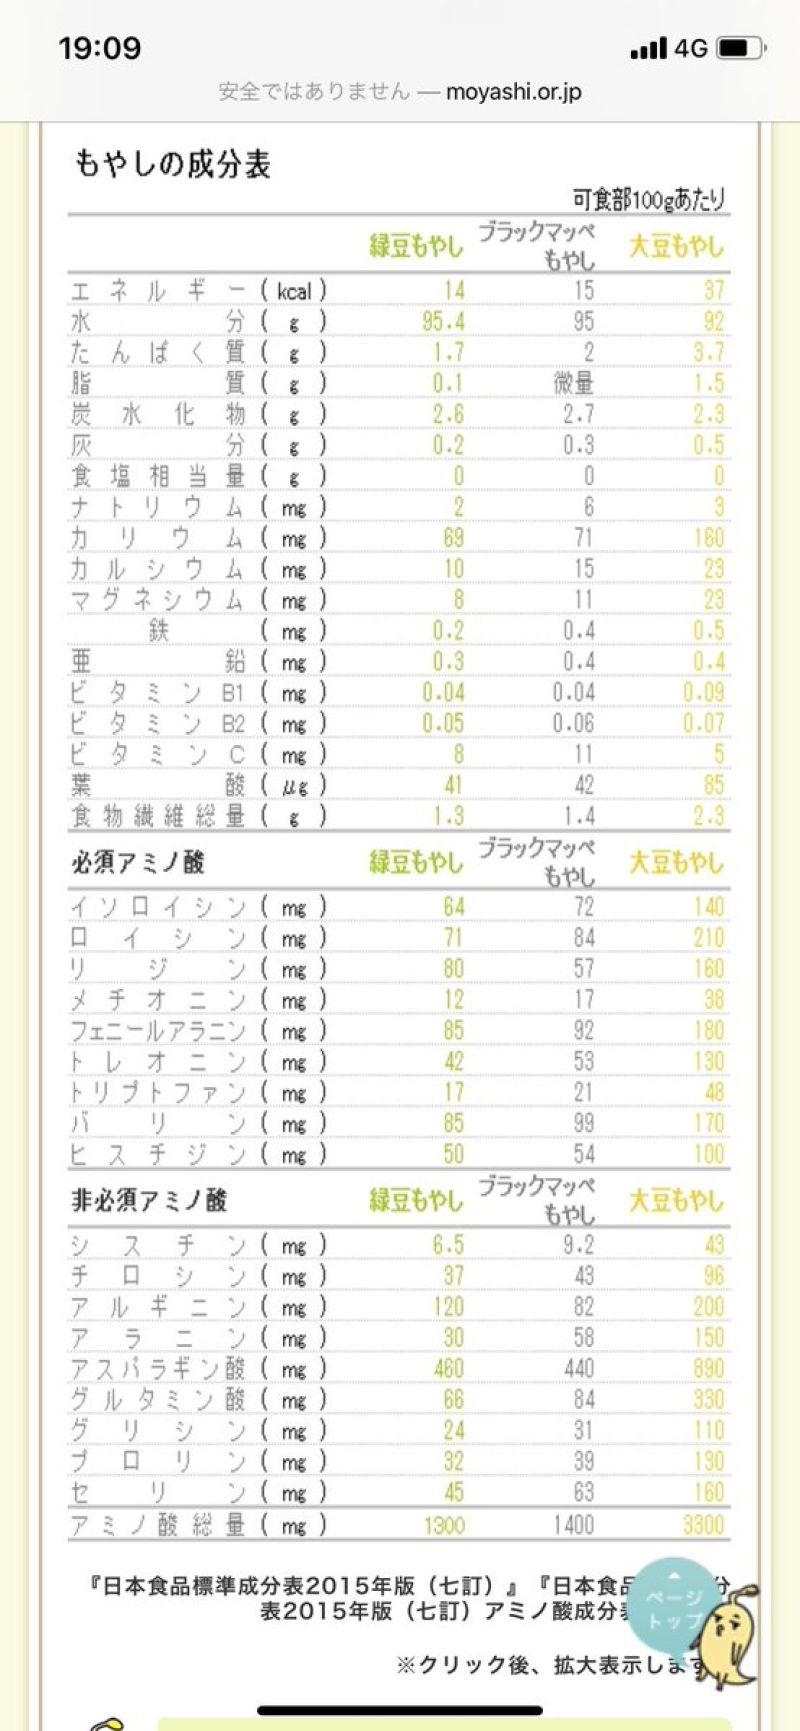 19:09
4G
安全ではありません — moyashi.or.jp
もやしの成分表
可食部100gあたり
緑豆もやし ブラックマッペもやし 大豆もやし
エネルギー(kcal) 14 15 37
水分(g) 95.4 95 92
たんぱく質(g) 1.7 2 3.7
脂質(g) 0.1 微量 1.5
炭水化物(g) 2.6 2.7 2.3
灰分(g) 0.2 0.3 0.5
食塩相当量(g) 0 0 0
ナトリウム(mg) 2 6 3
カリウム(mg) 69 71 160
カルシウム(mg) 10 15 23
マグネシウム(mg) 8 11 23
鉄(mg) 0.2 0.4 0.5
亜鉛(mg) 0.3 0.4 0.4
ビタミンB1(mg) 0.04 0.04 0.09
ビタミンB2(mg) 0.05 0.06 0.07
ビタミンC(mg) 8 11 5
葉酸(μg) 41 42 85
食物繊維総量(g) 1.3 1.4 2.3
必須アミノ酸 緑豆もやし ブラックマッペもやし 大豆もやし
イソロイシン(mg) 64 72 140
ロイシン(mg) 71 84 210
リジン(mg) 80 57 160
メチオニン(mg) 12 17 38
フェニールアラニン(mg) 85 92 180
トレオニン(mg) 42 53 130
トリプトファン(mg) 17 21 48
バリン(mg) 85 99 170
ヒスチジン(mg) 50 54 100
非必須アミノ酸 緑豆もやし ブラックマッペもやし 大豆もやし
シスチン(mg) 6.5 9.2 43
チロシン(mg) 37 43 96
アルギニン(mg) 120 82 200
アラニン(mg) 30 58 150
アスパラギン酸(mg) 460 440 890
グルタミン酸(mg) 66 84 330
グリシン(mg) 24 31 110
プロリン(mg) 32 39 130
セリン(mg) 45 63 160
アミノ酸総量(mg) 1300 1400 3300
『日本食品標準成分表2015年版（七訂）』『日本食品 分
表2015年版（七訂）アミノ酸成分表
ページ
トップ
※クリック後、拡大表示します